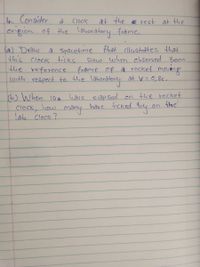 4. Consider a clock at the rest at the
origin of the laboratory frame.
(a) Draw a spacetime that illustrates that
this clock ticks slow when observed from
the reference frame of a rocket moving
with respect to the laboratory at V = 0,8c.
(b) When 10s have elapsed on the rocket
clock, how many have ticked by on the
lab clock?